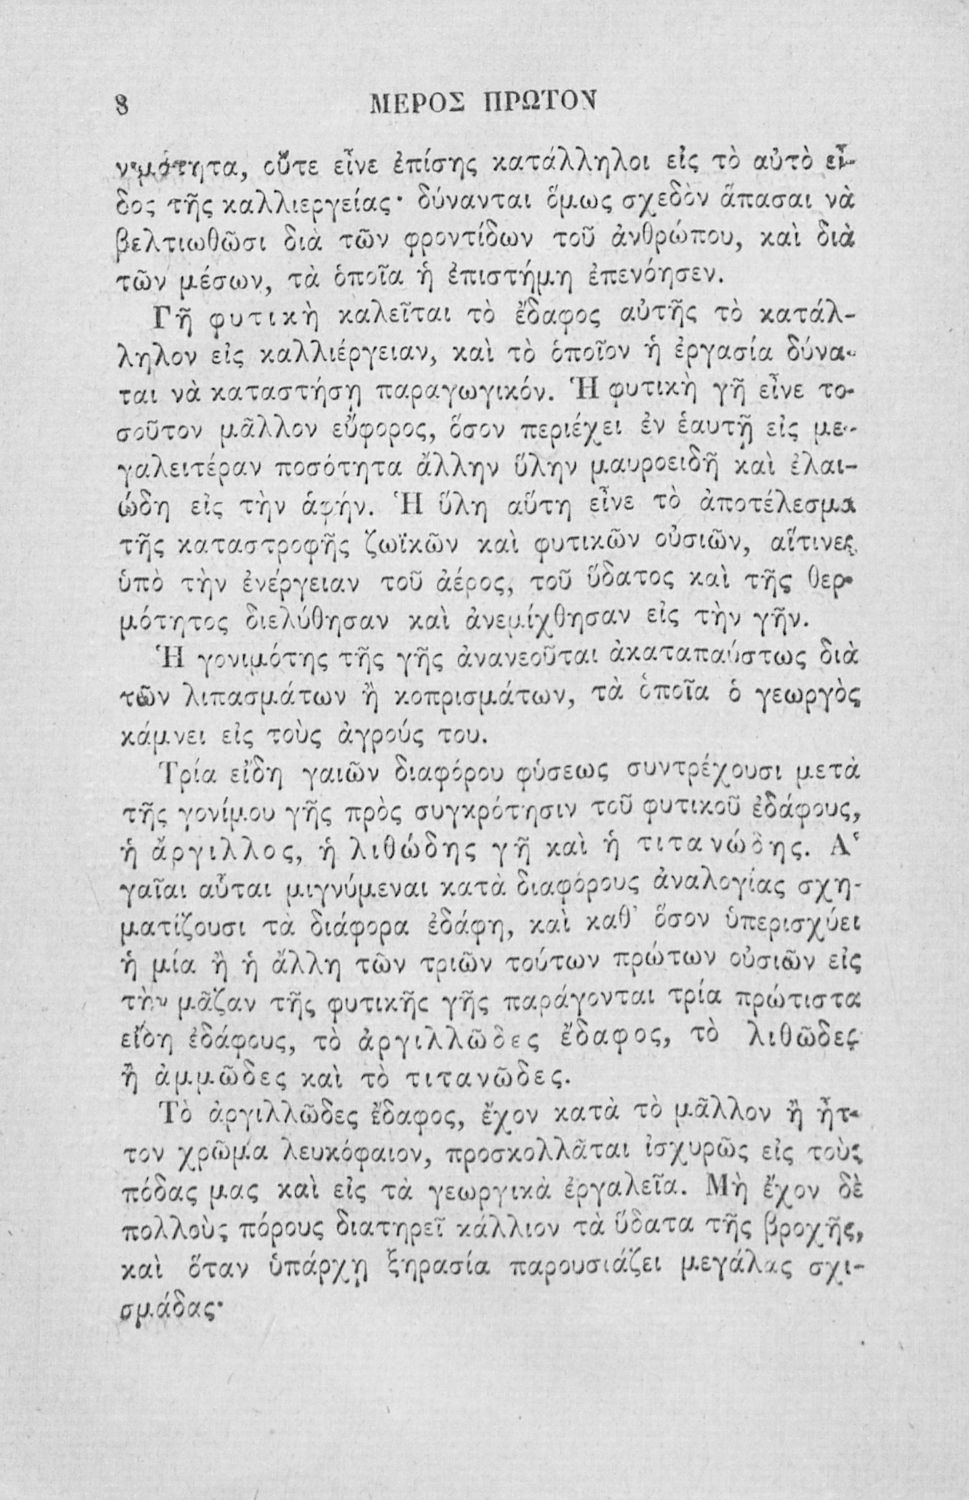 8 ΜΕΡΟΣ ΠΡΩΤΟΝ
νιμότητα, οὔτε εἶνε ἐπίσης κατάλληλοι εἰς τὸ αὐτὸ εἶ-
δος τῆς καλλιεργείας· δύνανται ὅμως σχεδὸν ἅπασαι νὰ
βελτιωθῶσι διὰ τῶν φροντίδων τοῦ ἀνθρώπου, καὶ διὰ
τῶν μέσων, τὰ ὁποῖα ἡ ἐπιστήμη ἐπενόησεν.
Γῆ φυτικὴ καλεῖται τὸ ἔδαφος αὐτῆς τὸ κατάλ-
ληλον εἰς καλλιέργειαν, καὶ τὸ ὁποῖον ἡ ἐργασία δύνα-
ται νὰ καταστήσῃ παραγωγικόν. Ἡ φυτικὴ γῆ εἶνε το-
σοῦτον μᾶλλον εὔφορος, ὅσον περιέχει ἐν ἑαυτῇ εἰς με-
γαλειτέραν ποσότητα ἄλλην ὕλην μαυροειδῆ καὶ ἐλαι-
ώδη εἰς τὴν ἁφήν. Ἡ ὕλη αὕτη εἶνε τὸ ἀποτέλεσμα
τῆς καταστροφῆς ζωϊκῶν καὶ φυτικῶν οὐσιῶν, αἵτινες
ὑπὸ τὴν ἐνέργειαν τοῦ ἀέρος, τοῦ ὕδατος καὶ τῆς θερ-
μότητος διελύθησαν καὶ ἀνεμίχθησαν εἰς τὴν γῆν.
Ἡ γονιμότης τῆς γῆς ἀνανεοῦται ἀκαταπαύστως διὰ
τῶν λιπασμάτων ἢ κοπρισμάτων, τὰ ὁποῖα ὁ γεωργὸς
κάμνει εἰς τοὺς ἀγρούς του.
Τρία εἴδη γαιῶν διαφόρου φύσεως συντρέχουσι μετὰ
τῆς γονίμου γῆς πρὸς συγκρότησιν τοῦ φυτικοῦ ἐδάφους,
ἡ ἄργιλλος, ἡ λιθώδης γῆ καὶ ἡ τιτανώδης. Αἱ
γαῖαι αὗται μιγνύμεναι κατὰ διαφόρους ἀναλογίας σχη-
ματίζουσι τὰ διάφορα ἐδάφη, καὶ καθ' ὅσον ὑπερισχύει
ἡ μία ἢ ἡ ἄλλη τῶν τριῶν τούτων πρώτων οὐσιῶν εἰς
τὴν μᾶζαν τῆς φυτικῆς γῆς παράγονται τρία πρώτιστα
εἴδη ἐδάφους, τὸ ἀργιλλῶδες ἔδαφος, τὸ λιθῶδες
ἢ ἀμμῶδες καὶ τὸ τιτανῶδες.
Τὸ ἀργιλλῶδες ἔδαφος, ἔχον κατὰ τὸ μᾶλλον ἢ ἧτ-
τον χρῶμα λευκόφαιον, προσκολλᾶται ἰσχυρῶς εἰς τοὺς
πόδας μας καὶ εἰς τὰ γεωργικὰ ἐργαλεῖα. Μὴ ἔχον δὲ
πολλοὺς πόρους διατηρεῖ κάλλιον τὰ ὕδατα τῆς βροχῆς,
καὶ ὅταν ὑπάρχῃ ξηρασία παρουσιάζει μεγάλας σχι-
σμάδας·